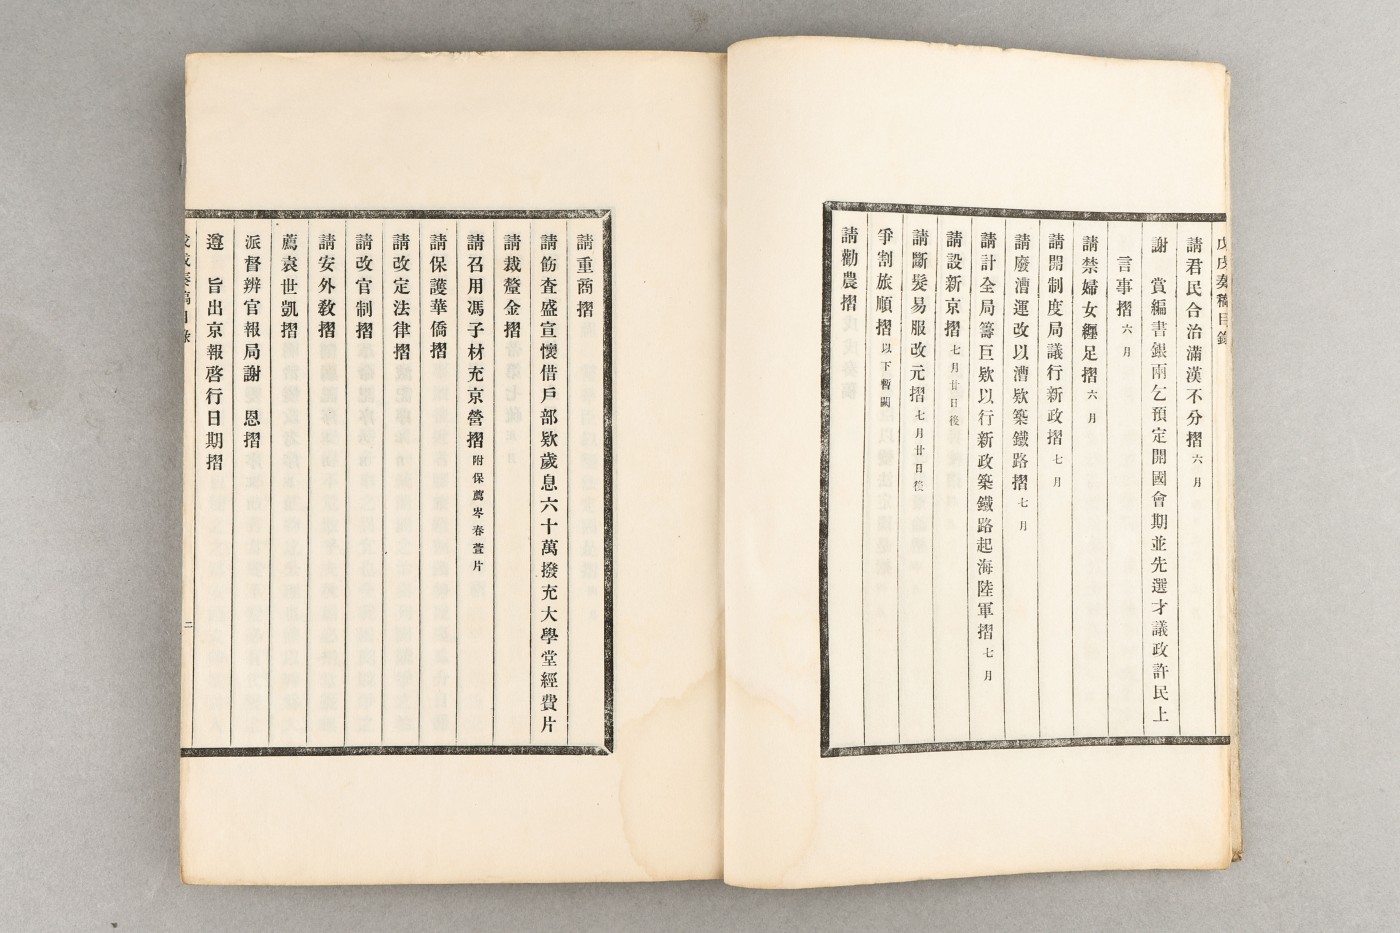 戊戌奏稿目錄
請君民合治滿漢不分摺 六月
謝 賞編書銀兩乞預定開國會期並先選才議政許民上
言事摺 六月
請禁婦女纏足摺 六月
請開制度局議行新政摺 七月
請廢漕運改以漕欵築鐵路摺 七月
請計全局籌巨欵以行新政築鐵路起海陸軍摺 七月
請設新京摺 七月廿日後
請斷髮易服改元摺 七月廿日後
爭割旅順摺 以下暫闕
請勸農摺
請重商摺
請飭查盛宣懷借戶部欵歲息六十萬撥充大學堂經費片
請裁釐金摺
請召用馮子材充京營摺 附保薦岑春萱片
請保護華僑摺
請改定法律摺
請改官制摺
請安外教摺
薦袁世凱摺
派督辦官報局謝 恩摺
遵 旨出京報啓行日期摺
戊戌奏稿目錄
二